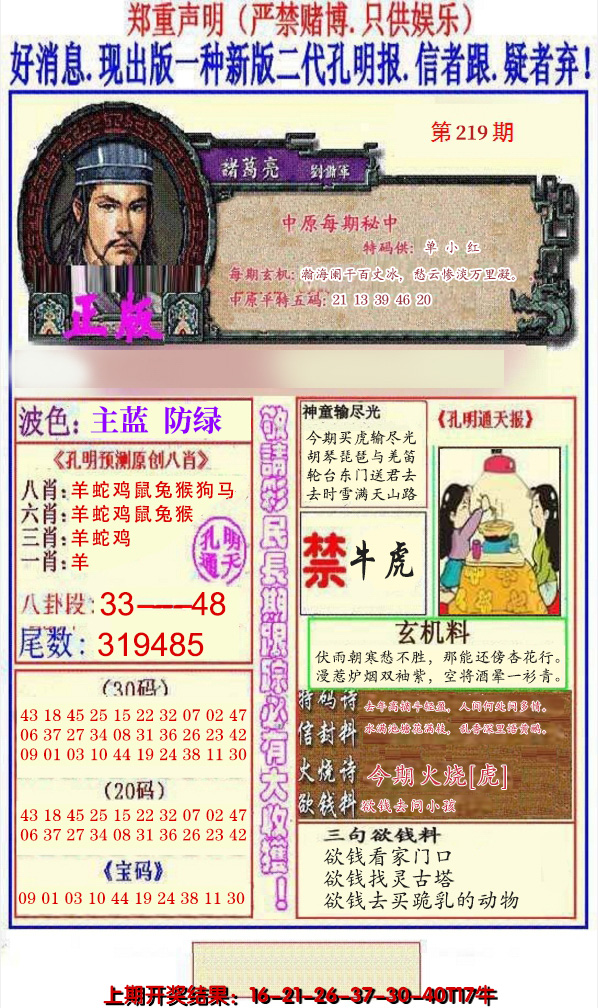 郑重声明（严禁赌博.只供娱乐）
好消息.现出版一种新版二代孔明报.信者跟.疑者弃!
第219期
諸葛亮 劉備軍
中原每期秘中
特码供: 单小红
每期玄机: 瀚海阑干百丈冰，愁云惨淡万里凝。
中原平特五码: 21 13 39 46 20
正版
波色: 主蓝 防绿
《孔明预测原创八肖》
八肖:羊蛇鸡鼠兔猴狗马
六肖:羊蛇鸡鼠兔猴
三肖:羊蛇鸡
一肖:羊
孔明
通天
八卦段:33——48
尾数: 319485
（30码）
43 18 45 25 15 22 32 07 02 47
06 37 27 34 08 31 36 26 23 42
09 01 03 10 44 19 24 38 11 30
（20码）
43 18 45 25 15 22 32 07 02 47
06 37 27 34 08 31 36 26 23 42
《宝码》
09 01 03 10 44 19 24 38 11 30
敬請彩民長期跟踪必有大收獲！
神童输尽光
今期买虎输尽光
胡琴琵琶与羌笛
轮台东门送君去
去时雪满天山路
《孔明通天报》
禁 牛虎
玄机料
伏雨朝寒愁不胜，那能还傍杏花行。
漫惹炉烟双袖紫，空将酒晕一衫青。
特码诗 去年高摘斗轻盈，人间何处问多情。
信封料 水满池塘花满枝，乱香深里语黄鹂。
火烧诗 今期火烧[虎]
欲钱料 欲钱去问小孩
三句欲钱料
欲钱看家门口
欲钱找灵古塔
欲钱去买跪乳的动物
上期开奖结果：16-21-26-37-30-40T17牛